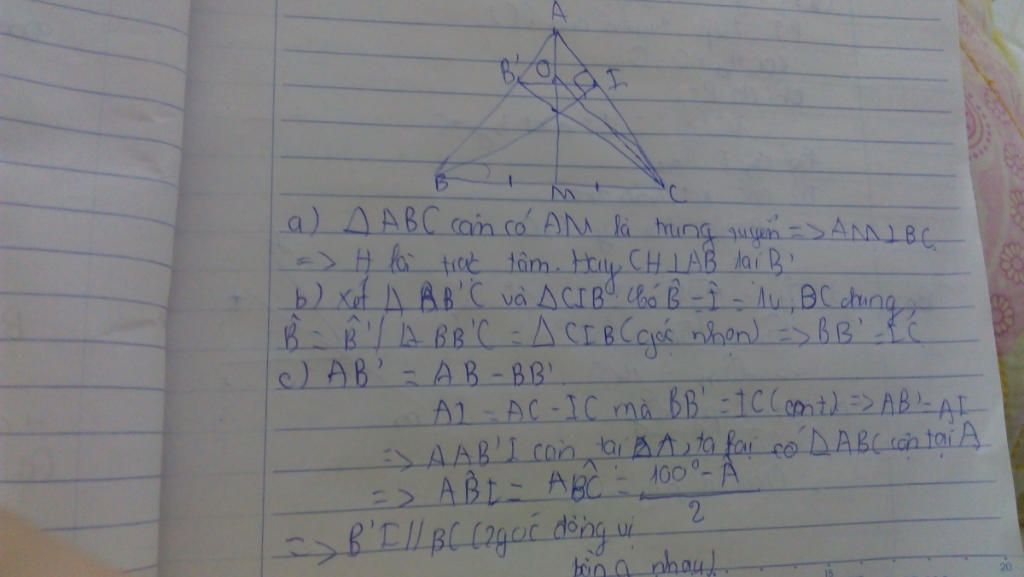 A
B' O I
B M C
a) ΔABC cân có AM là trung tuyến => AM⊥BC
=> H là trực tâm. Hay CH⊥AB tại B'
b) Xét ΔBB'C và ΔCIB có B̂ = Î = 1v, BC chung
B̂ = B̂' / ΔBB'C = ΔCIB (góc nhọn) => BB' = IC
c) AB' = AB - BB'
AI = AC - IC mà BB' = IC (cmt) => AB' = AI
=> AAB'I cân tại A, ta lại có ΔABC cân tại A
=> AB̂I = AB̂C = 100° - Â
2
=> B'I // BC (2 góc đồng vị
bằng nhau)
15 20